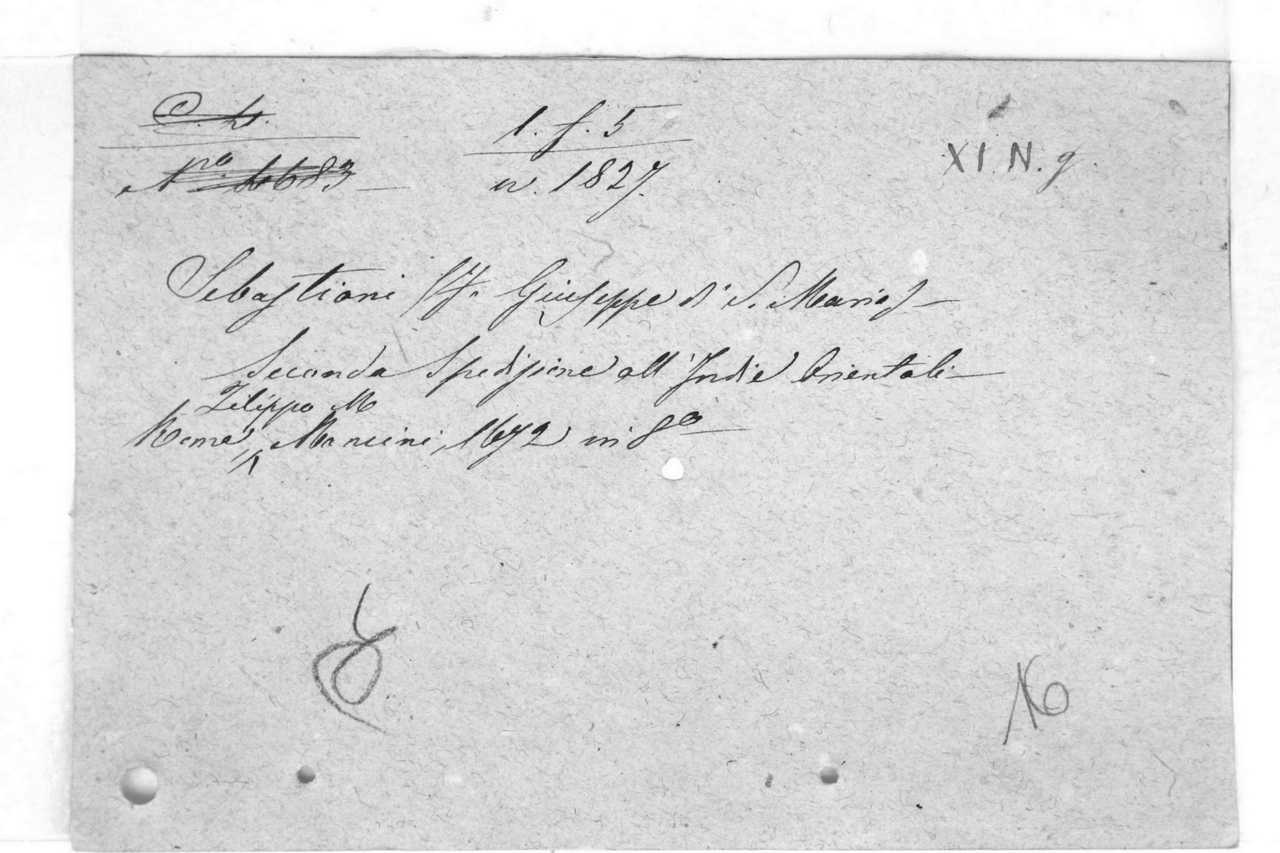 C. 4.
Nro 4683
1. f. 5
n. 1827.
XI. N. g.
Sebastiani (F. Giuseppe di S. Maria)
Seconda Spedizione all' Indie Orientali
Filippo M
Roma, Mancini, 1672 in 8o
16